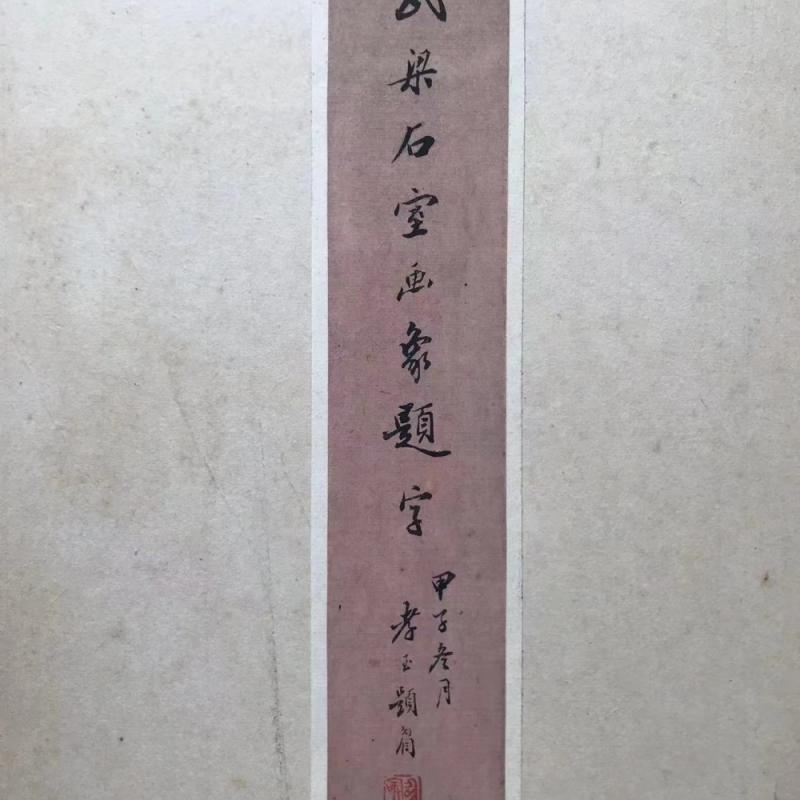 武梁石室画象題字
甲子冬月
孝玉題眉